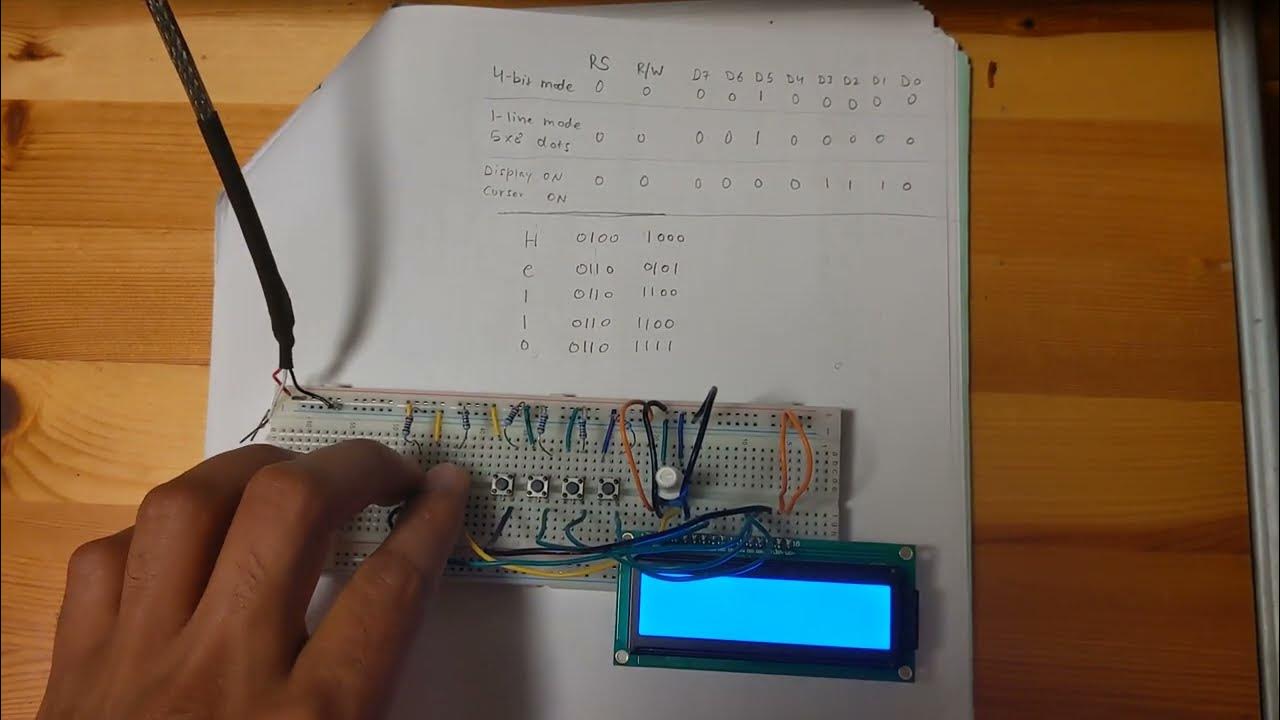 RS R/W D7 D6 D5 D4 D3 D2 D1 D0
4-bit mode 0 0 0 0 1 0 0 0 0 0
1-line mode
5x8 dots 0 0 0 0 1 0 0 0 0 0
Display ON 0 0 0 0 0 0 1 1 1 0
Curser ON
H 0100 1000
e 0110 0101
l 0110 1100
l 0110 1100
o 0110 1111